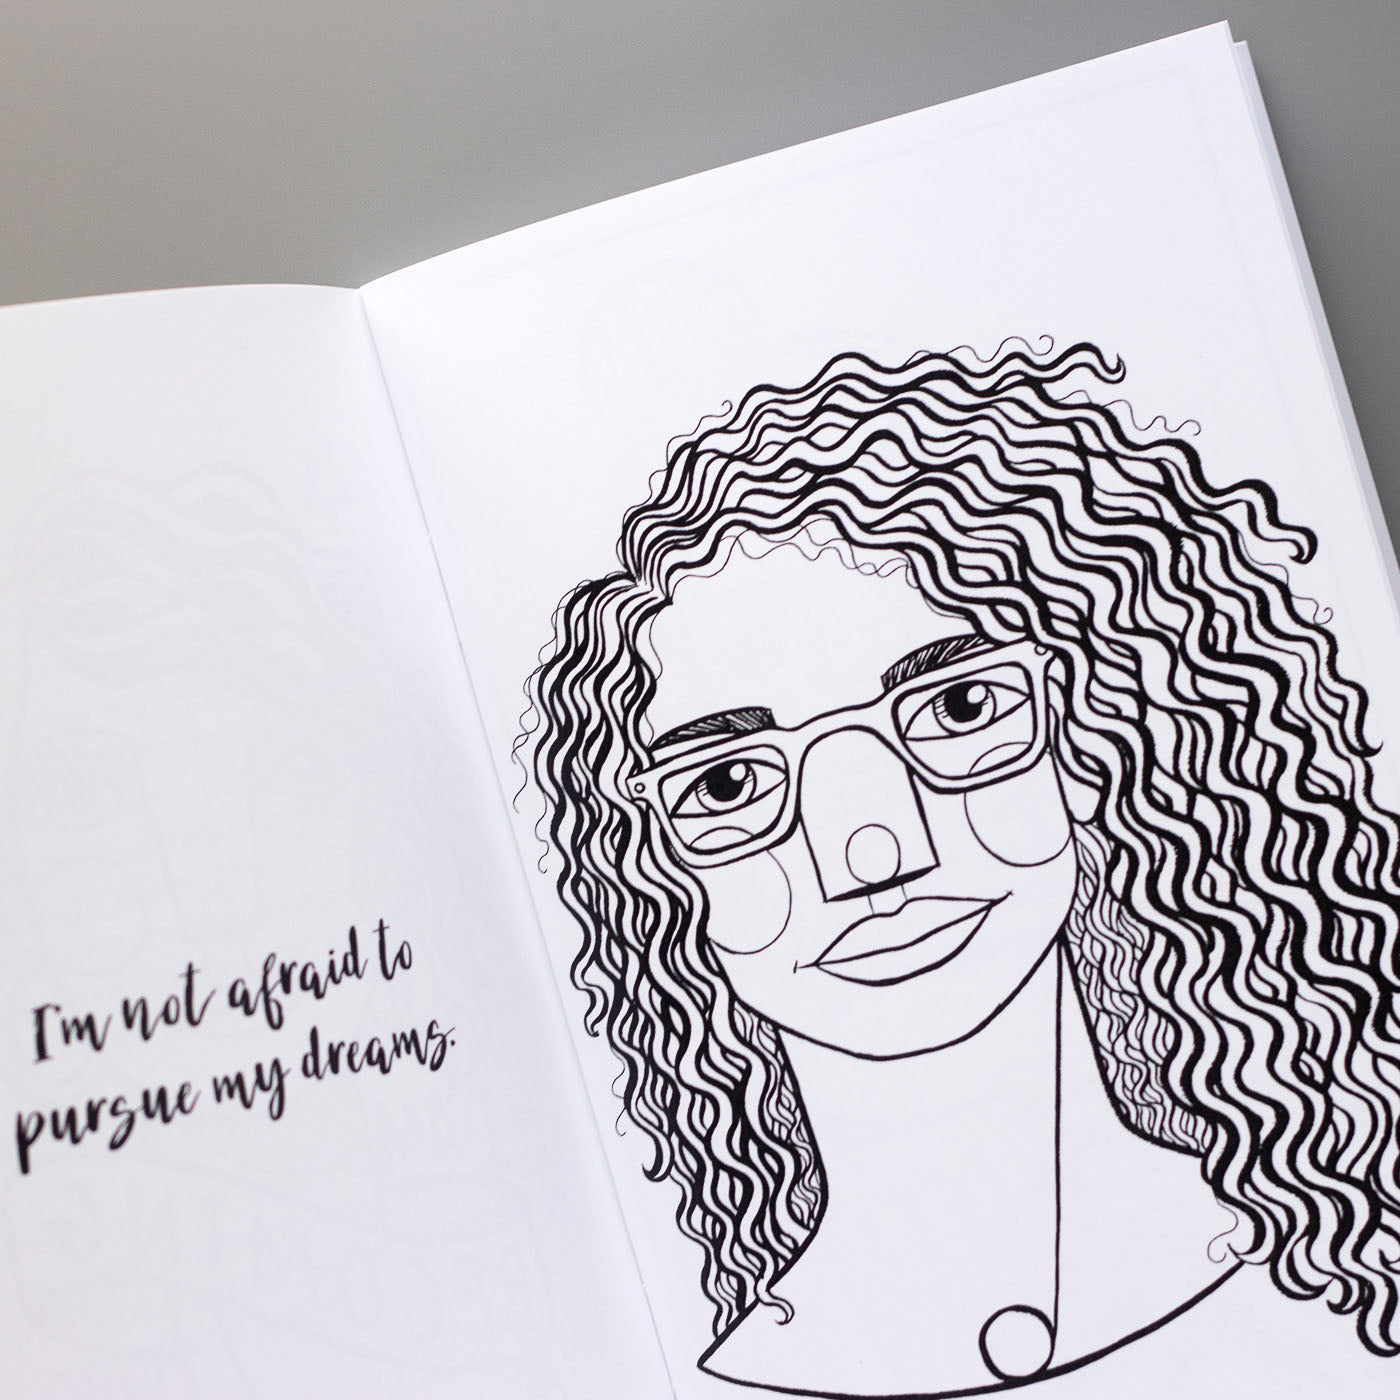 I'm not afraid to
pursue my dreams.